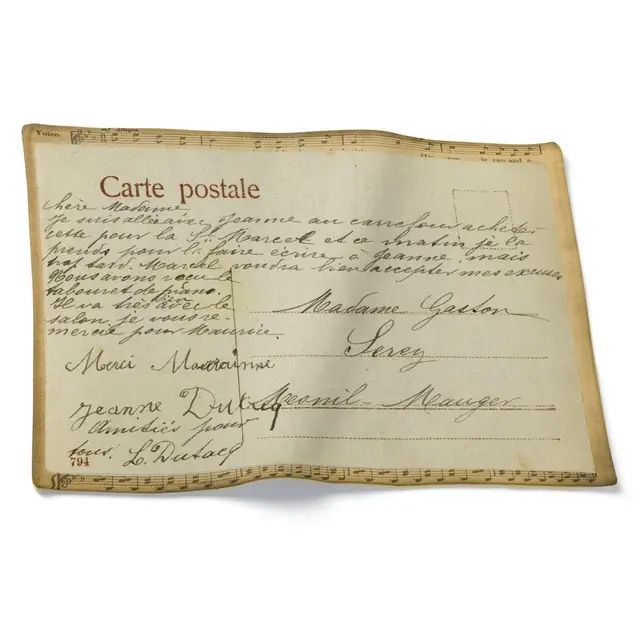 Voice.
two and a
Carte postale
Chère Madame
Je suis allée avec Jeanne au carrefour acheter
cette pour la St Marcel et ce matin je la
prends pour la faire écrire à Jeanne, mais
trop tard. Marcel voudra bien accepter mes excuses
Nous avons reçu le
tabouret de piano.
Il va très bien avec le
salon, je vous re-
mercie pour Maurice.
Merci Marraine
Jeanne Dutacq
Amitiés pour
tous. L. Dutacq
794
Madame Gaston
Serey
Mesnil-Mauger